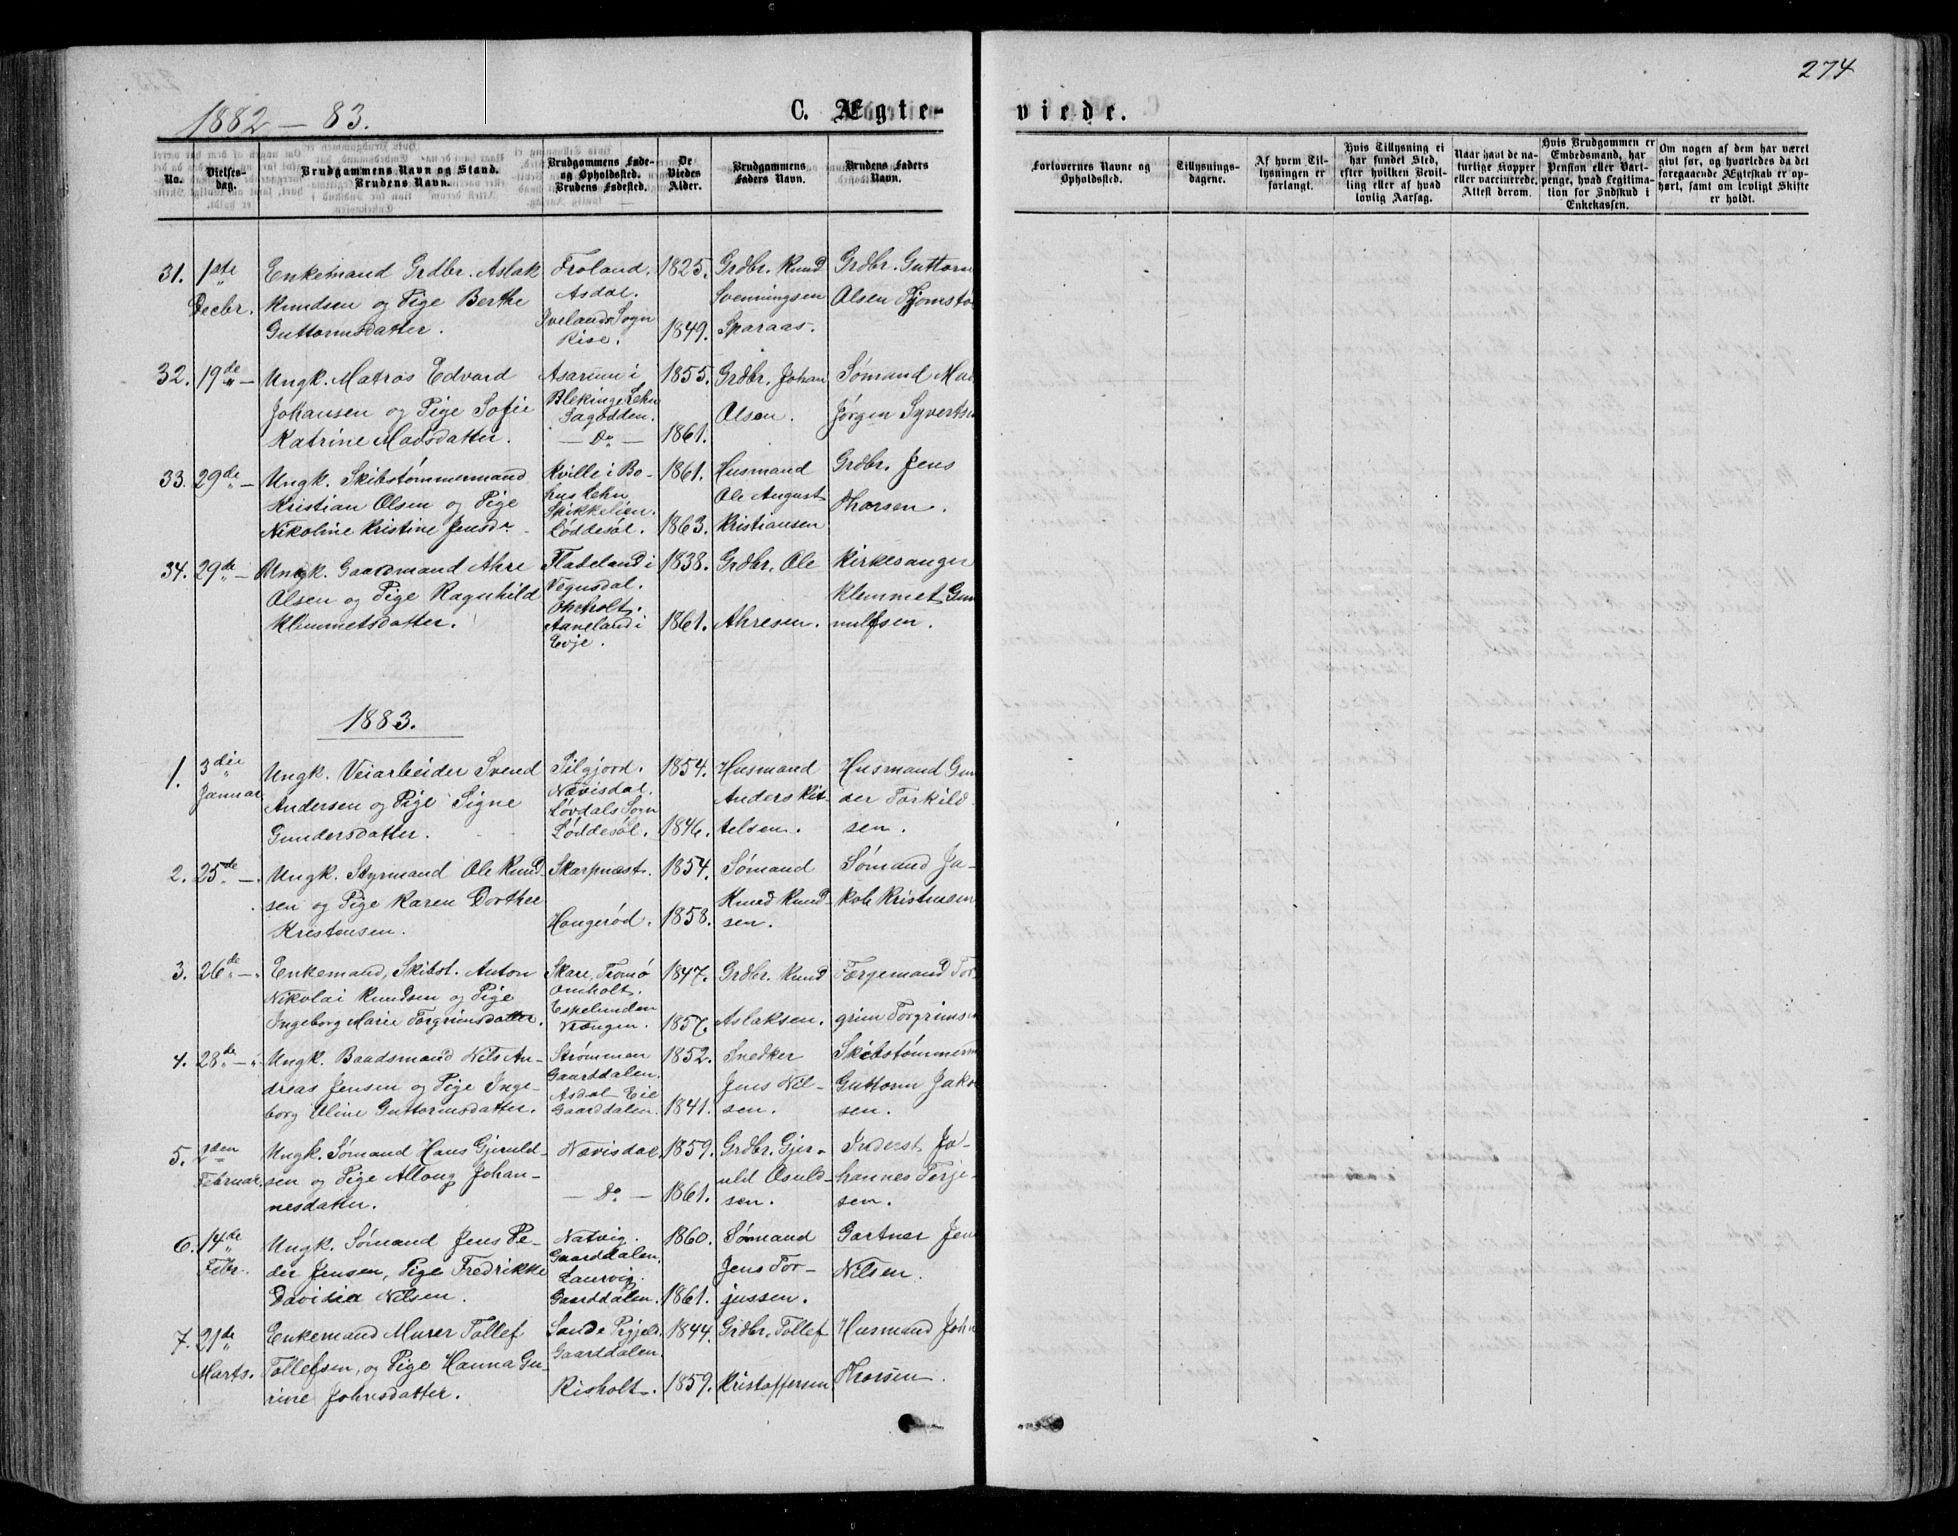 274
1882 – 83.
C. Ægte-
viede.
No.
Vielses-
dag.
Brudgommens Navn og Stand.
Brudens Navn.
Brudgommens Føde-
og Opholdssted.
Brudens Fødested.
De
Viedes
Alder.
Brudgommens
Faders Navn.
Brudens Faders
Navn.
Forlovernes Navne og
Opholdssted.
Tillysnings-
dagene.
Af hvem Til-
lysningen er
forlangt.
Hvis Tillysning ei
har fundet Sted,
efter hvilken Bevil-
ling eller af hvad
lovlig Aarsag.
Naar havt de na-
turlige Kopper
eller vaccinerede.
Attest derom.
Hvis Brudgommen er
Embedsmand, har
Pension eller Vart-
penge, hvad Legitima-
tion for Indskud i
Enkekassen.
Om nogen af dem har været
givt før, og hvorledes da det
foregaaende Ægteskab er op-
hørt, samt om lovligt Skifte
er holdt.
31.
1ste
Decbr.
Enkemand Grdbr. Aslak
Knudsen og Pige Berthe
Guttormsdatter.
Froland.
Asdal.
Ivelands Sogn
Rise.
1825.
1849.
Grdbr. Knud
Svenningsen
Sparaas.
Grdbr. Guttorm
Olsen
32.
19de " —
Ungk. Matros Edvard
Johansen og Pige Sofie
Katrine Madsdatter.
Asarum i
Blekinge Lehn
— Do —
1855.
1861.
Grdbr. Johan
Olsen.
Sømand
Jørgen Syvertsen
33.
29de " —
Ungk. Skibstømmermand
Kristian Olsen og Pige
Nikoline Kristine Jensdr.
Kville i Bo-
hus Lehn
Løddesøl.
1861.
1863.
Husmand
Ole August
Kristiansen
Grdbr. Jens
Thorsen.
34.
29de " —
Ungk. Gaardmand Ahre
Olsen og Pige Ragnhild
Klemmetsdatter.
Fladeland i
Vegusdal.
Aaneland i
Evje.
1838.
1861.
Grdbr. Ole
Ahresen.
Kirkesanger
Klemmet Gun
nulfsen.
1883.
1.
3die
"
Januar
Ungk. Veiarbeider Svend
Andersen og Pige Signe
Gundersdatter.
Silgjord.
Nævisdal.
Løvdals Sogn
Løddesøl.
1854.
1846.
Husmand
Anders Kit-
telsen.
Husmand Gun
der Torkild-
sen.
2.
25de " —.
Ungk. Styrmand Ole Knud
sen og Pige Karen Dorthea
Kristensen.
Skarpnæst.
Hangerød.
1854.
1858.
Sømand
Knud Knud-
sen.
Sømand Ja-
kob Kristensen
3.
26de " —.
Enkemand, Skibst. Anton
Nikolai Knudsen og Pige
Ingeborg Marie Torgrimsdatter.
Skare, Tromø
Omholt.
Espelunden
Vrængen.
1847.
1857.
Grdbr. Knud
Aslaksen.
Færgemand Tor-
grim Torgrims
4.
28de —".
Ungk. Baadsmand Nils An-
dreas Jensen og Pige Inge-
borg Oline Guttormsdatter.
Strømmen
Gaarddalen.
Asdal Eie
Gaarddalen.
1852.
1841.
Snedker
Jens Nil-
sen.
Skibstømmerm
Guttorm Jakob
sen.
5.
Februar.
Ungk. Sømand Hans Gjeruld-
sen og Pige Allong Johan-
nesdatter.
Nævisdal.
— Do —
1859.
1861.
Grdbr. Gjer-
uld Osuld-
sen.
Inderst Jo-
hannes Terje-
sen.
6.
14de
"
Febr.
Ungk. Sømand Jens Pe-
der Jensen, Pige Fredrikke
Davidia Nilsen.
Natvig.
Gaarddalen.
Laurvig.
Gaarddalen.
1860.
1861.
Sømand
Jens Tor-
jussen.
Gartner Jens
Nilsen.
7.
21de
"
Marts.
Enkemand Murer Tollef
Tollefsen, og Pige Hanna Gu-
rine Johnsdatter.
Sande
Gaarddalen.
Risholt.
1844.
1859.
Grdbr. Tollef
Kristoffersen
Husmand John
Thorsen.